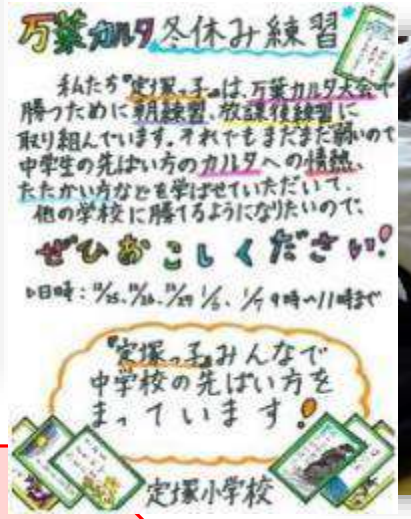 万葉カルタ冬休み練習
私たち"定塚っ子"は、万葉カルタ大会で
勝つために朝練習、放課後練習に
取り組んでいます。それでもまだまだ弱いので
中学生の先ぱい方のカルタへの情熱、
たたかい方などを学ばせていただいて、
他の学校に勝てるようになりたいので、
ぜひおこしください!
日時:12/25、12/26、12/27 1/6、1/7 9時〜11時まで
"定塚っ子"みんなで
中学校の先ぱい方を
まっています!
定塚小学校